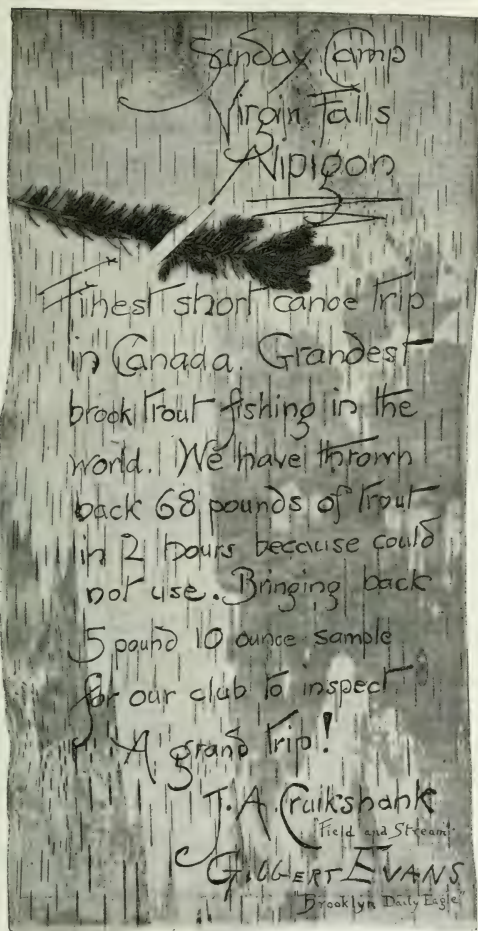 Sunday Camp
Virgin Falls
Nipigon
Finest short canoe trip
in Canada. Grandest
brook trout fishing in the
world. We have thrown
back 68 pounds of trout
in 2 hours because could
not use. Bringing back
5 pound 10 ounce sample
for our club to inspect.
A grand trip!
J. A. Cruikshank
"Field and Stream"
Gilbert Evans
"Brooklyn Daily Eagle"